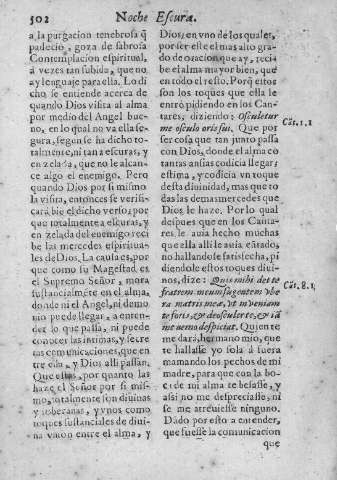 502 Noche Escura.
a la purgacion tenebrosa q̃
padecio, goza de sabrosa
Contemplacion espiritual,
á vezes tan subida, que no
ay lenguaje para ella. Lo di
cho, se entiende acerca de
quando Dios visita al alma
por medio del Angel bue
no, en lo qual no va ella se
gura, segun se ha dicho to-
talmente, ni tan a escuras, y
en zelada, que no le alcan-
ce algo el enemigo. Pero
quando Dios por si mismo
la visita, entonces se verifi-
cará bie el dicho verso; por
que totalmente a escuras, y
en zelada del enemigo reci
be las mercedes espiritua-
les de Dios. La causa es, por
que como su Magestad es
el Supremo Señor, mora
sustancialmente en el alma,
donde ni el Angel, ni demo
nio puede llegar, a enten-
der lo que passa, ni puede
conocer las intimas, y secre
tas comunicaciones, que en
tre ella, y Dios alli passan.
Que estas, por quanto las
haze el Señor por si mis-
mo, totalmente son diuinas
y soberanas, y vnos como
toques sustanciales de diui
na vnion entre el alma, y
Dios; en vno de los quales,
por ser este el mas alto gra-
do de oracion que ay, reci-
be el alma mayor bien, que
en todo el resto. Porq̃ estos
son los toques que ella le
entrò pidiendo en los Can-
tares, diziendo: Osculetur
me osculo oris sui. Que por
ser cosa que tan junto passa
con Dios, donde el alma co
tantas ansias codicia llegar;
estima, y codicia vn toque
desta diuinidad, mas que to
das las demas mercedes que
Dios le haze. Por lo qual
despues que en los Canta-
res le auia hecho muchas
que ella alli le auia cãtado,
no hallandose satisfecha, pi
diendole estos toques diui-
nos, dize: Quis mihi det te
fratrem meum sugentem vbe
ra matris meæ, vt inueniam
te foris, & deosculer te, & iã
me nemo despiciat. Quien te
me dará, hermano mio, que
te hallasse yo sola á fuera
mamando los pechos de mi
madre, para que con la bo-
ca de mi alma te besasse, y
assi no me despreciasse, ni
se me atreuiesse ninguno.
Dãdo por esto a entender,
que fuesse la comunicacion
que
Cãt. 1. 1
Cãt. 8. 1.